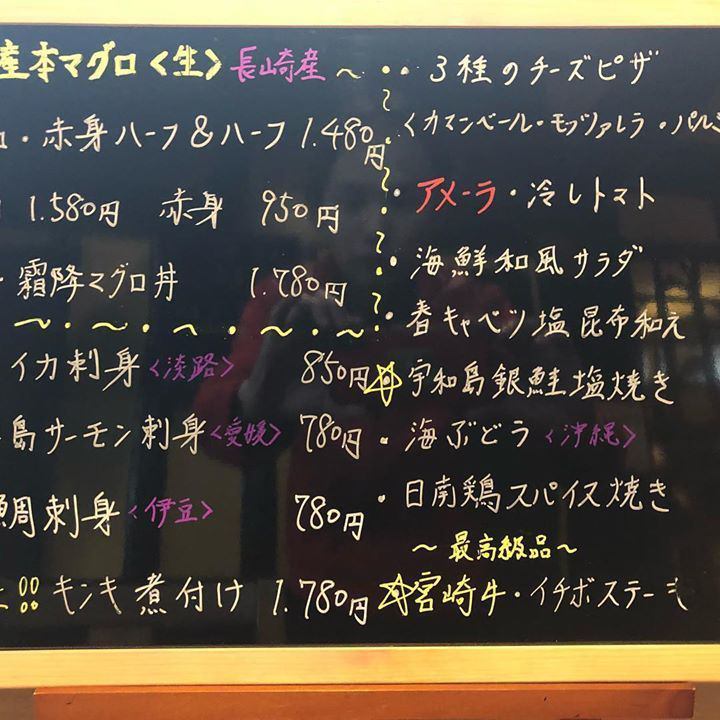 産本マグロ〈生〉長崎産~
ロ・赤身ハーフ&ハーフ 1.480円
1.580円 赤身 950円
・霜降マグロ丼 1.780円
イカ刺身〈淡路〉 850円
島サーモン刺身〈愛媛〉 780円
鯛刺身〈伊豆〉 780円
品 キンキ煮付け 1.780円
・3種のチーズピザ
〈カマンベール・モッツァレラ・パルミ
・アメーラ・冷しトマト
・海鮮和風サラダ
・春キャベツ塩昆布和え
☆宇和島銀鮭塩焼き
・海ぶどう〈沖縄〉
・日南鶏スパイス焼き
~最高級品~
☆宮崎牛・イチボステーキ